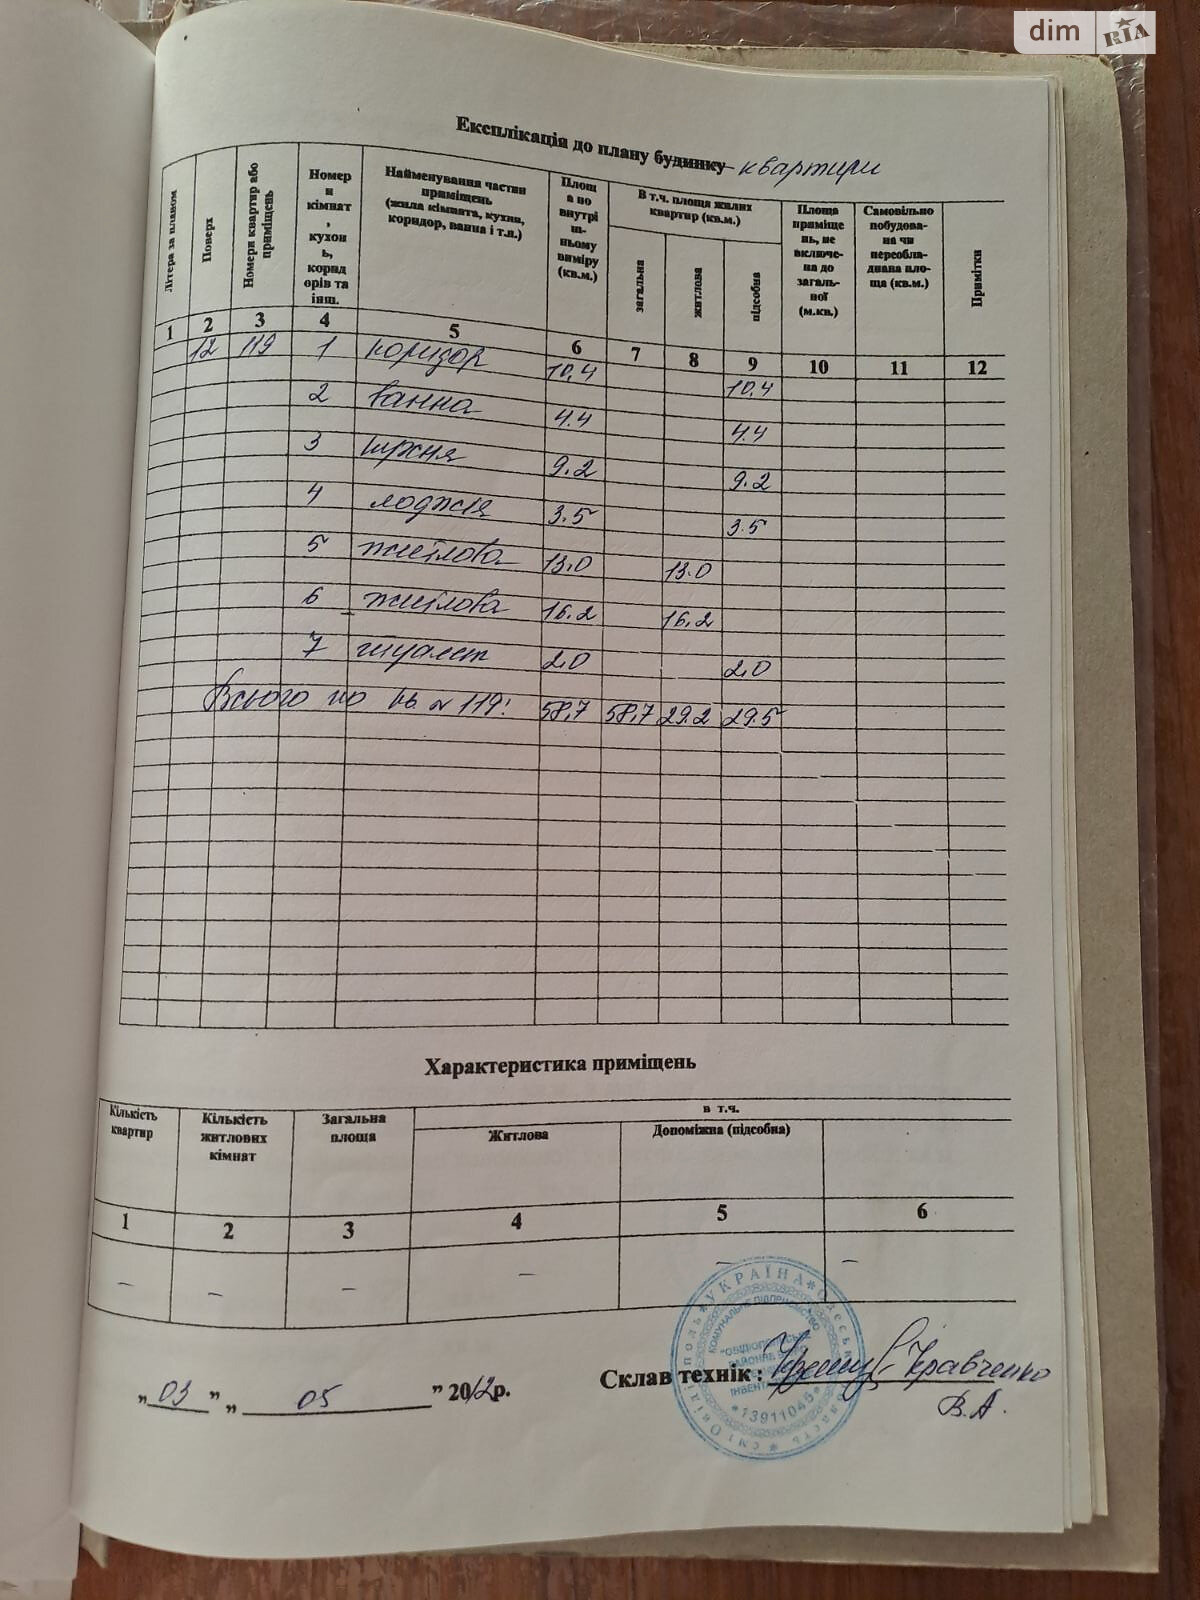 dim RIA
Експлікація до плану будинку квартири
Літера за планом
Поверх
Номери квартир або приміщень
Номери кімнат, кухонь, коридорів та інш.
Найменування частин приміщень (жила кімната, кухня, коридор, ванна і т.п.)
Площа по внутрішньому виміру (кв.м.)
В т.ч. площа жилих квартир (кв.м.)
загальна
житлова
підсобна
Площа приміщень, не включена до загальної (м.кв.)
Самовільно побудована чи переобладнана площа (кв.м.)
Примітки
1 2 3 4 5 6 7 8 9 10 11 12
12 119 1 коридор 10,4 10,4
2 ванна 4.4 4.4
3 кухня 9.2 9.2
4 лоджія 3.5 3.5
5 житлова 13.0 13.0
6 житлова 16.2 16.2
7 туалет 2.0 2.0
Всього по кв. № 119: 58,7 58,7 29.2 29.5
Характеристика приміщень
Кількість квартир
Кількість житлових кімнат
Загальна площа
в т.ч.
Житлова
Допоміжна (підсобна)
1 2 3 4 5 6
– – – – – –
„ 03 ” „ 05 ” 2012р.
Склав технік : Кравченко
В.А.
УКРАЇНА
КОМУНАЛЬНЕ ПІДПРИЄМСТВО
*13911045*